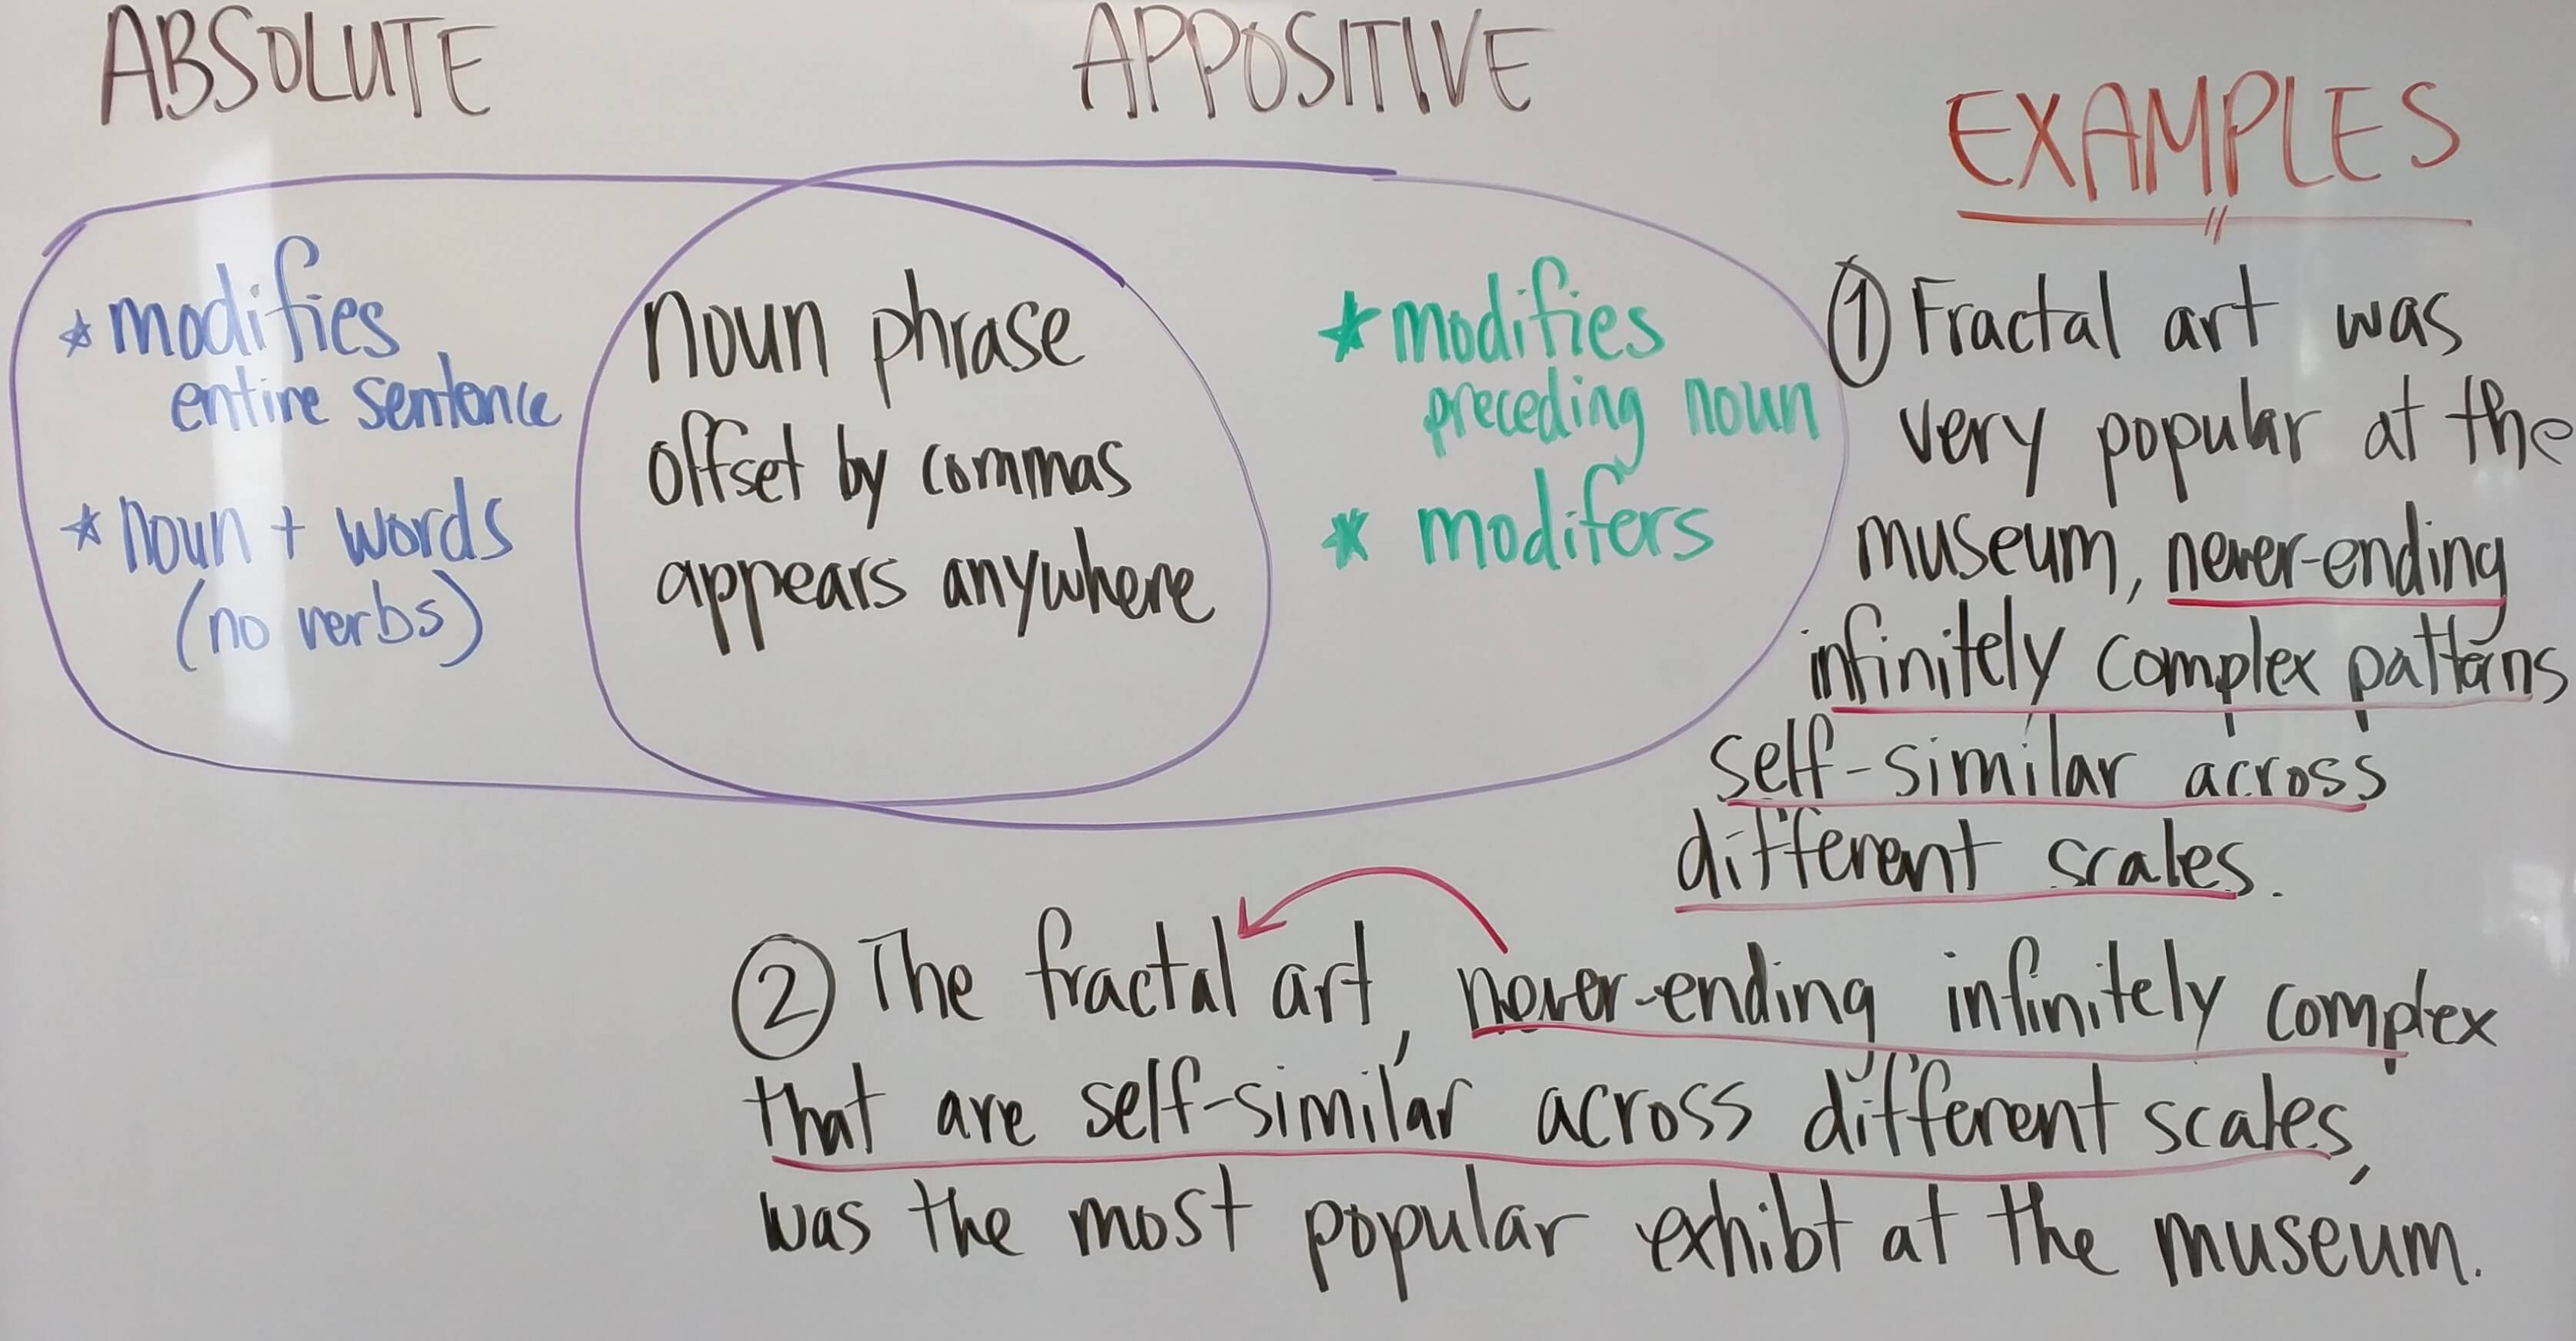 ABSOLUTE
APPOSITIVE
* modifies
entire sentence
* noun + words
(no verbs)
noun phrase
offset by commas
appears anywhere
* modifies
preceding noun
* modifers
EXAMPLES
① Fractal art was
very popular at the
museum, never-ending
infinitely complex patterns
self-similar across
different scales.
② The fractal art, never-ending infinitely complex
that are self-similar across different scales,
was the most popular exhibt at the museum.